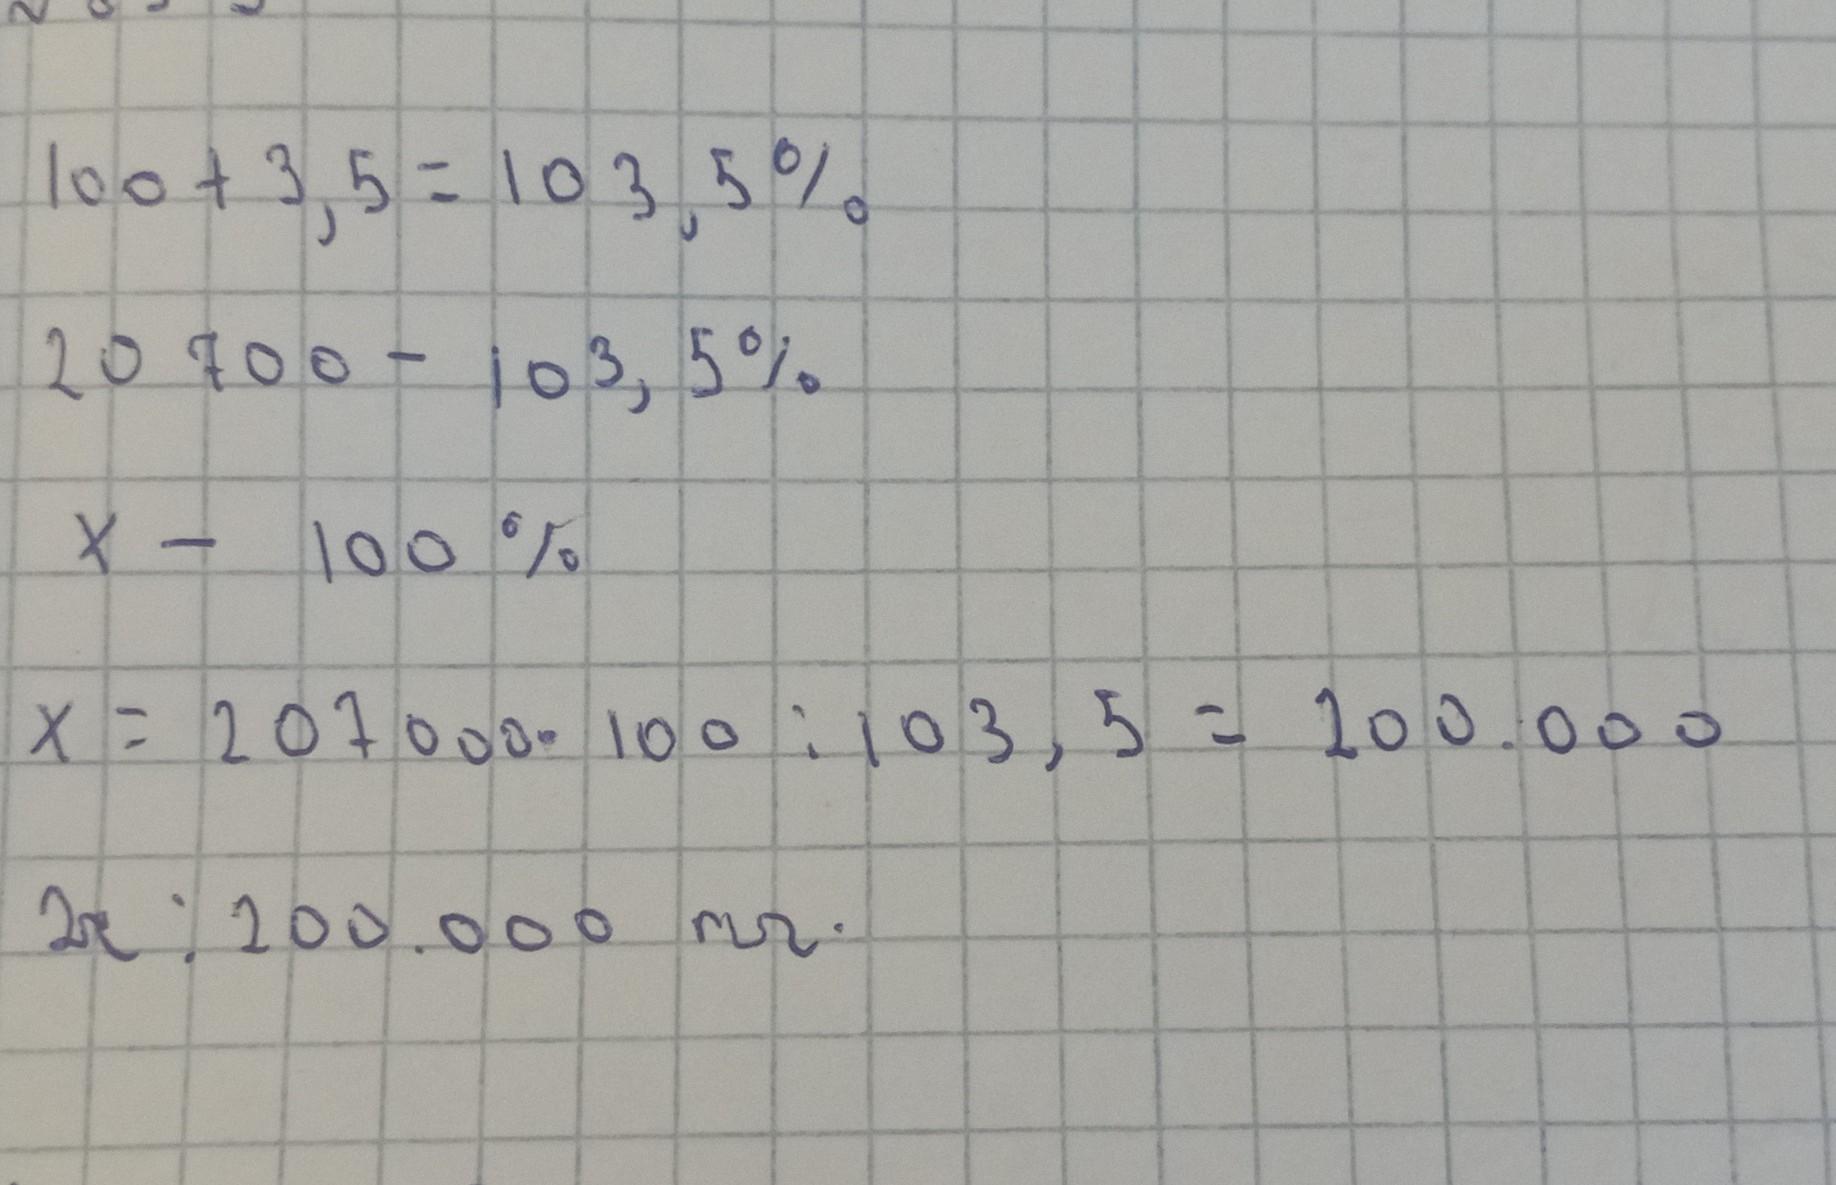 100 + 3,5 = 103,5%
20 700 - 103,5%
x - 100%
x = 207000 · 100 : 103,5 = 200.000
: 200.000